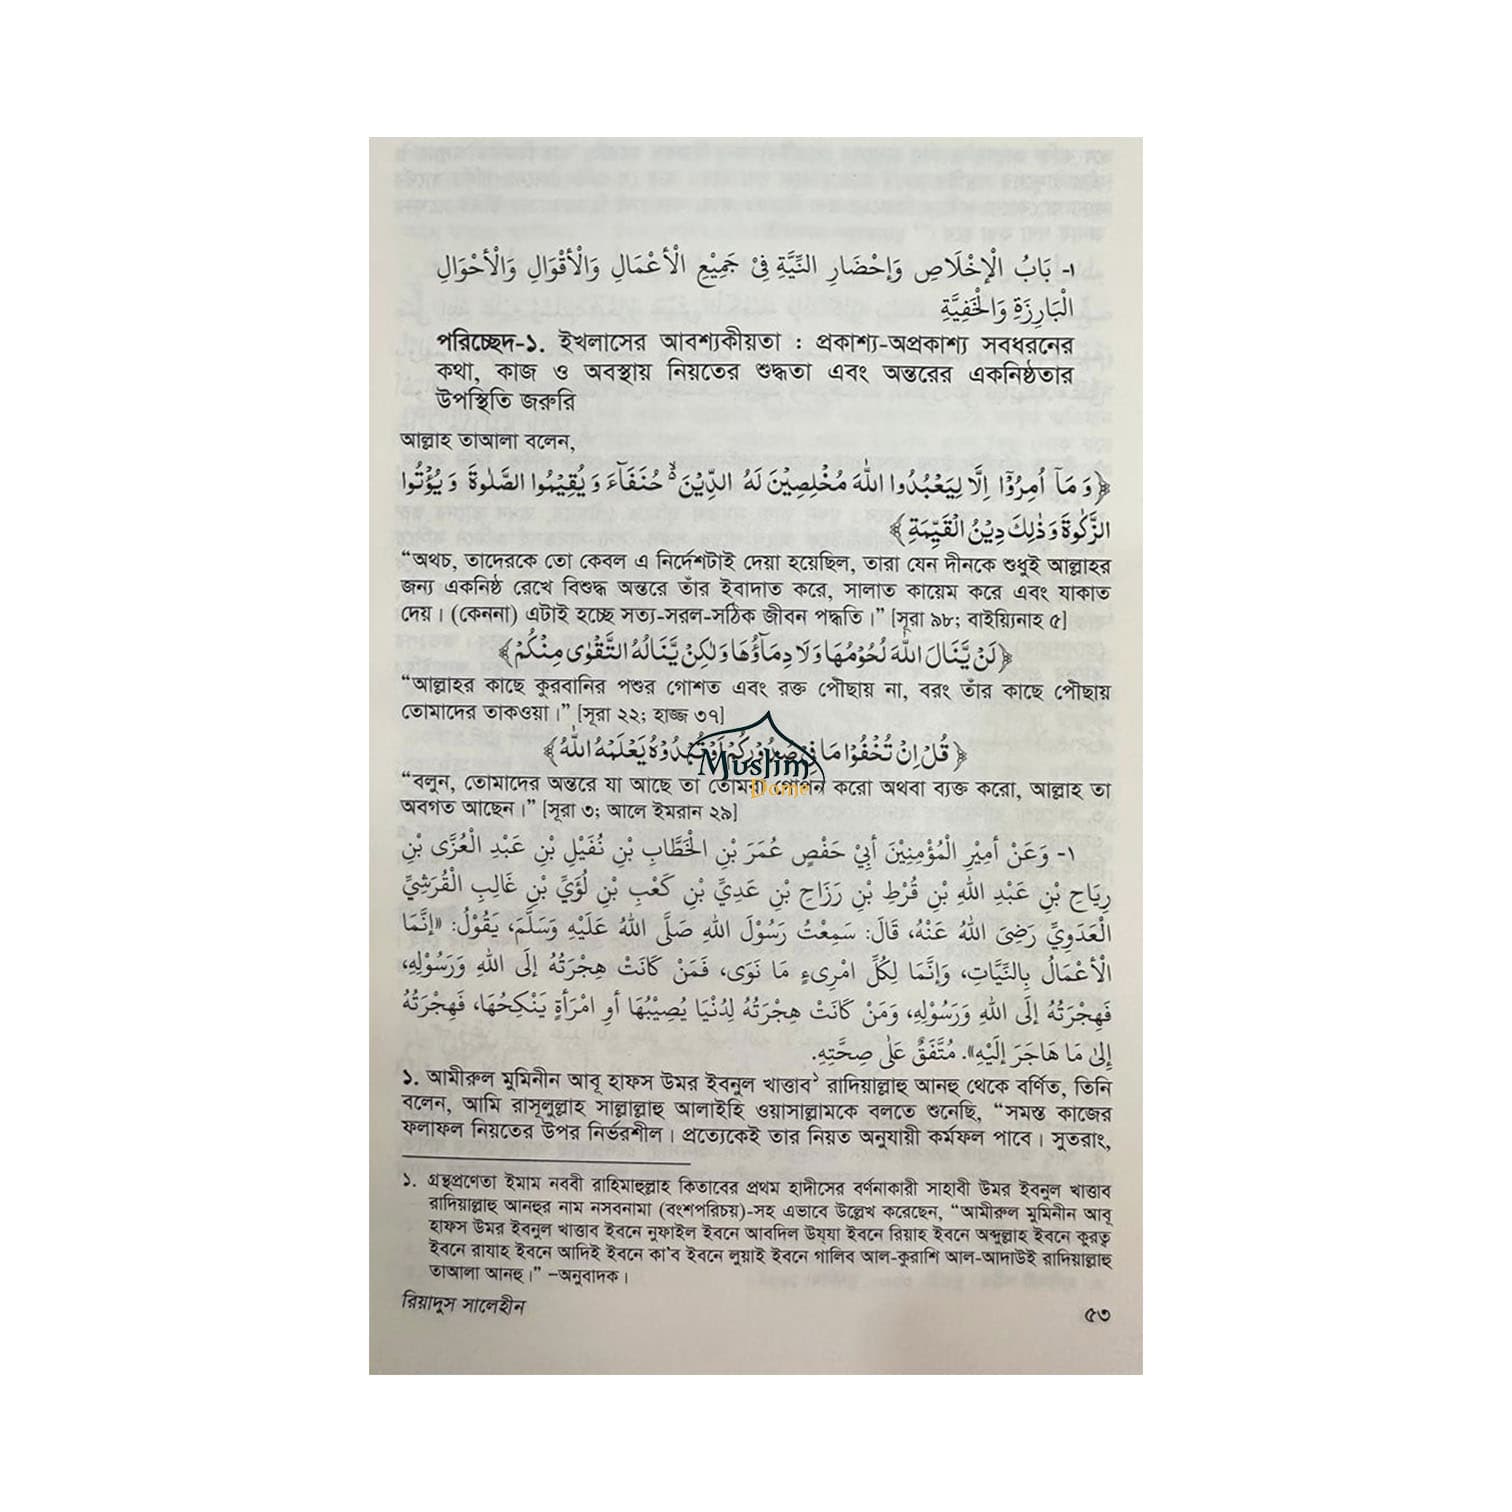 ١- بَابُ الْإِخْلَاصِ وَإِحْضَارِ النِّيَّةِ فِيْ جَمِيْعِ الْأَعْمَالِ وَالْأَقْوَالِ وَالْأَحْوَالِ
الْبَارِزَةِ وَالْخَفِيَّةِ
পরিচ্ছেদ-১. ইখলাসের আবশ্যকীয়তা : প্রকাশ্য-অপ্রকাশ্য সবধরনের
কথা, কাজ ও অবস্থায় নিয়তের শুদ্ধতা এবং অন্তরের একনিষ্ঠতার
উপস্থিতি জরুরি
আল্লাহ তাআলা বলেন,
﴿وَ مَاۤ اُمِرُوْۤا اِلَّا لِيَعْبُدُوا اللّٰهَ مُخْلِصِيْنَ لَهُ الدِّيْنَ ۙ۬ حُنَفَآءَ وَ يُقِيْمُوا الصَّلٰوةَ وَ يُؤْتُوا
الزَّكٰوةَ وَ ذٰلِكَ دِيْنُ الْقَيِّمَةِ﴾
“অথচ, তাদেরকে তো কেবল এ নির্দেশটাই দেয়া হয়েছিল, তারা যেন দীনকে শুধুই আল্লাহর
জন্য একনিষ্ঠ রেখে বিশুদ্ধ অন্তরে তাঁর ইবাদাত করে, সালাত কায়েম করে এবং যাকাত
দেয়। (কেননা) এটাই হচ্ছে সত্য-সরল-সঠিক জীবন পদ্ধতি।” [সূরা ৯৮; বাইয়্যিনাহ ৫]
﴿لَنْ يَّنَالَ اللّٰهَ لُحُوْمُهَا وَ لَا دِمَآؤُهَا وَلٰكِنْ يَّنَالُهُ التَّقْوٰى مِنْكُمْ﴾
“আল্লাহর কাছে কুরবানির পশুর গোশত এবং রক্ত পৌছায় না, বরং তাঁর কাছে পৌছায়
তোমাদের তাকওয়া।” [সূরা ২২; হাজ্জ ৩৭]
﴿قُلْ اِنْ تُخْفُوْا مَا فِيْ صُدُوْرِكُمْ اَوْ تُبْدُوْهُ يَعْلَمْهُ اللّٰهُ﴾
Muslim
Dome
“বলুন, তোমাদের অন্তরে যা আছে তা তোমরা গোপন করো অথবা ব্যক্ত করো, আল্লাহ তা
অবগত আছেন।” [সূরা ৩; আলে ইমরান ২৯]
١- وَعَنْ أمِيْرِ الْمُؤْمِنِيْنَ أبِيْ حَفْصٍ عُمَرَ بْنِ الْخَطَّابِ بْنِ نُفَيْلِ بْنِ عَبْدِ الْعُزَّى بْنِ
رِيَاحِ بْنِ عَبْدِ اللهِ بْنِ قُرْطِ بْنِ رَزَاحِ بْنِ عَدِيِّ بْنِ كَعْبِ بْنِ لُؤَيِّ بْنِ غَالِبِ الْقُرَشِيِّ
الْعَدَوِيِّ رَضِيَ اللهُ عَنْهُ، قَالَ: سَمِعْتُ رَسُوْلَ اللهِ صَلَّى اللهُ عَلَيْهِ وَسَلَّمَ، يَقُوْلُ: «إنَّمَا
الْأعْمَالُ بِالنِّيَّاتِ، وَإنَّمَا لِكُلِّ امْرِىءٍ مَا نَوَى، فَمَنْ كَانَتْ هِجْرَتُهُ إلَى اللهِ وَرَسُوْلِهِ،
فَهِجْرَتُهُ إلَى اللهِ وَرَسُوْلِهِ، وَمَنْ كَانَتْ هِجْرَتُهُ لِدُنْيَا يُصِيْبُهَا أوِ امْرَأةٍ يَنْكِحُهَا، فَهِجْرَتُهُ
إلىٰ مَا هَاجَرَ إلَيْهِ». مُتَّفَقٌ عَلٰى صِحَّتِهِ.
১. আমীরুল মুমিনীন আবূ হাফস উমর ইবনুল খাত্তাব১ রাদিয়াল্লাহু আনহু থেকে বর্ণিত, তিনি
বলেন, আমি রাসূলুল্লাহ সাল্লাল্লাহু আলাইহি ওয়াসাল্লামকে বলতে শুনেছি, “সমস্ত কাজের
ফলাফল নিয়তের উপর নির্ভরশীল। প্রত্যেকেই তার নিয়ত অনুযায়ী কর্মফল পাবে। সুতরাং,
১. গ্রন্থপ্রণেতা ইমাম নববী রাহিমাহুল্লাহ কিতাবের প্রথম হাদীসের বর্ণনাকারী সাহাবী উমর ইবনুল খাত্তাব
রাদিয়াল্লাহু আনহুর নাম নসবনামা (বংশপরিচয়)-সহ এভাবে উল্লেখ করেছেন, “আমীরুল মুমিনীন আবূ
হাফস উমর ইবনুল খাত্তাব ইবনে নুফাইল ইবনে আবদিল উয্যা ইবনে রিয়াহ ইবনে অব্দুল্লাহ ইবনে কুরত্ব
ইবনে রাযাহ ইবনে আদিই ইবনে কা'ব ইবনে লুয়াই ইবনে গালিব আল-কুরাশি আল-আদাউই রাদিয়াল্লাহু
তাআলা আনহু।” –অনুবাদক।
রিয়াদুস সালেহীন
৫৩